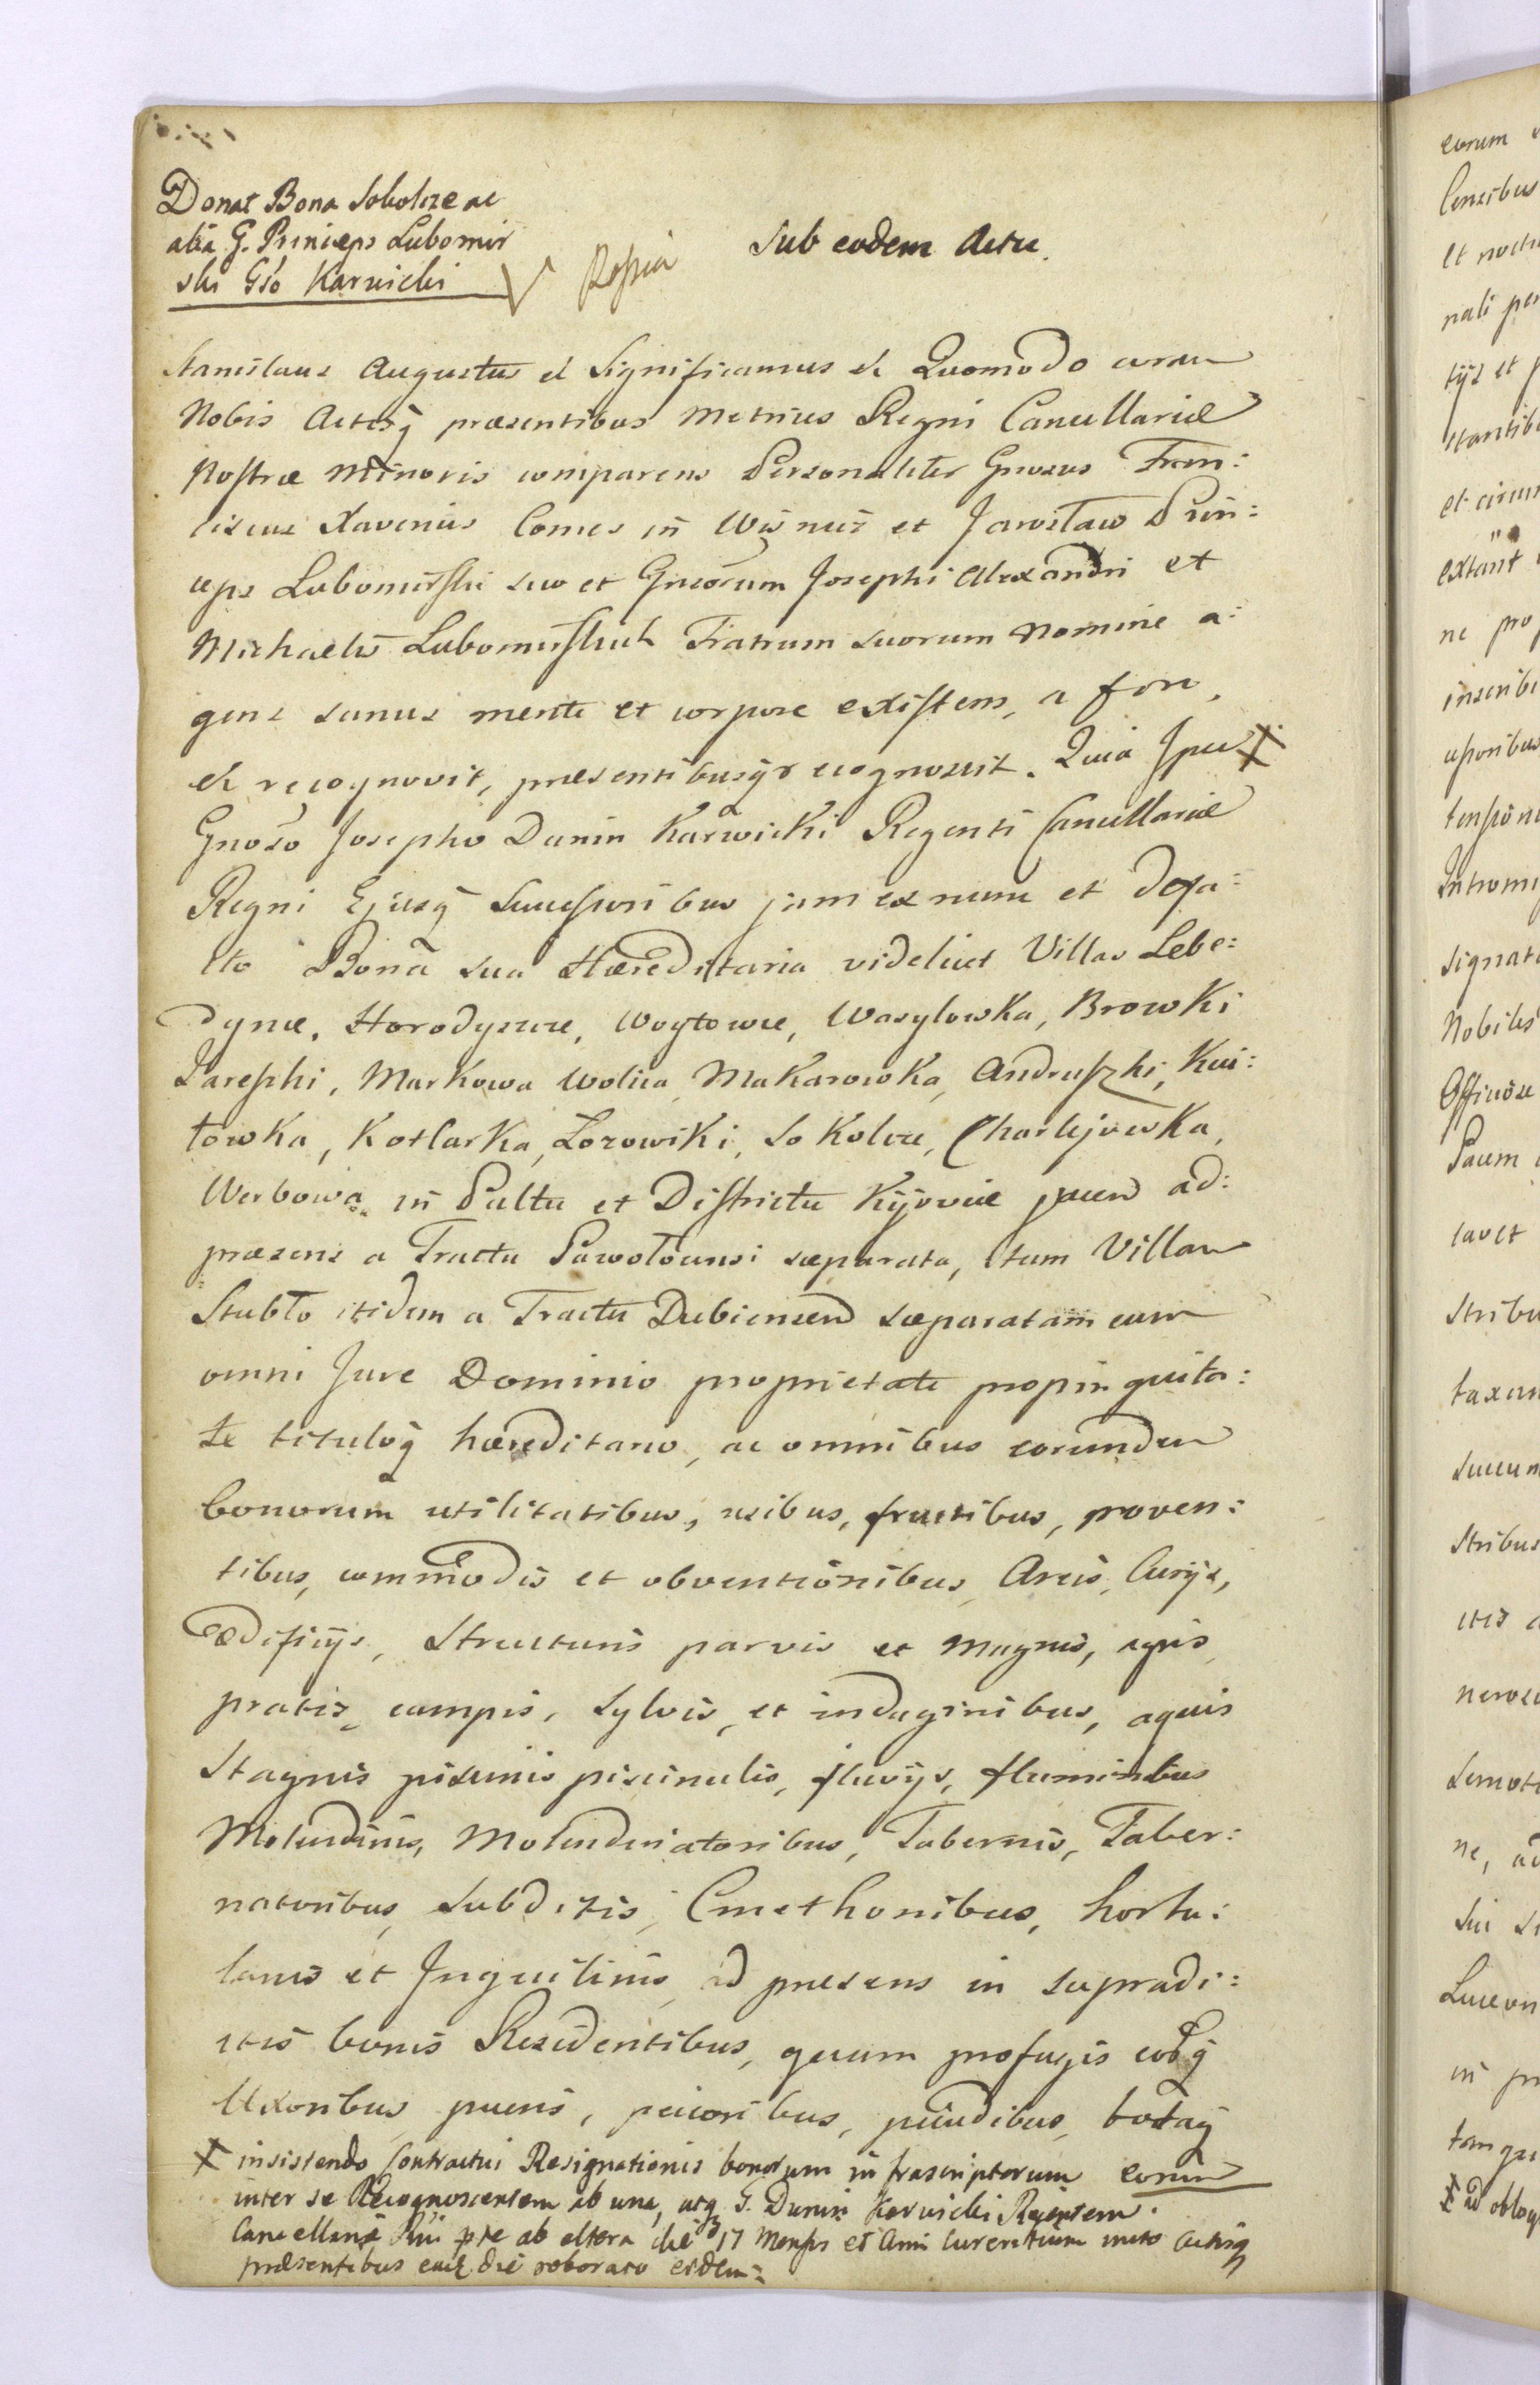 Donat Bona Sokolcze ac
alia G. Princeps Lubomir
ski Gso Karwicki
Sub eodem Actu.
Stanislaus Augustus et Significamus et Quomodo coram
Nobis Actisq praesentibus Metrices Regni Cancellariae
Nostrae Minoris comparens Personaliter Gnosus Fran:
ciscus Xaverius Comes in Wisnicz et Jarosław Prin:
ceps Lubomirski suo et Gnosorum Josephi Alexandri et
Michaelis Lubomirskich Fratrum suorum nomine a:
gens sanus mente et corpore existens, a fore,
et recognovit, praesentibusq recognoscit. Quia Ipse X
Gnoso Josepho Dunin Karwicki Regenti Cancellariae
Regni Ejusq Successoribus jam ex nunc et de fa:
cto Bona sua Haereditaria videlicet Villas Lebe:
dynce, Horodyszcze, Woytowce, Wasylowka, Browki
Jareszki, Markowa Wolica Makarowka, Andruszki, Kwi:
towka, Kotlarka, Łozowiki, Sokolcze, Charlejowka,
Werbowa in Pałtu et Districtu Kijoviae ad:
praesens a Tractu Pawołocensi separata, tum Villam
Stubło itidem a Tractu Dubiensi separatam cum
omni Jure Dominio proprietate propinquita:
te tituloq haereditario, ac omnibus eorundem
bonorum utilitatibus, usibus, fructibus, proven:
tibus, commodis et obventionibus, Areis, Curijs,
Aedificijs, Structuris parvis et Magnis, agris
pratis, campis, Sylvis, et indaginibus, aquis
Stagnis piscinis piscinulis, fluvijs, fluminibus
Molendinis, Molendinatoribus, Tabernis, Taber:
natoribus, Subditis, Cmethonibus, hortu:
lanis et Inquilinis ad praesens in supradi:
ctis bonis Residentibus, quam profugis eorq
Uxoribus pueris, pecoribus, pecudibus, totaq
X insistendo Contractui Resignationis bonorum infrascriptorum eorum
inter se Recognoscentem ab una, atq G. Dunin Karwicki Regentem
Cancellariae Rni pte ab altera die 17 Mensis et Anni currentium inito Actisq
praesentibus eadem die roborato eidem:
eorum
Censibus
et
nali
tijs et
stantib
et circum
extant
ne pro
inscribi
Intromi
signat
Nobiles
Officiose
Pacem
cavet
Stribu
Stribus
ne, ad
sui
in
tanqu
X ad